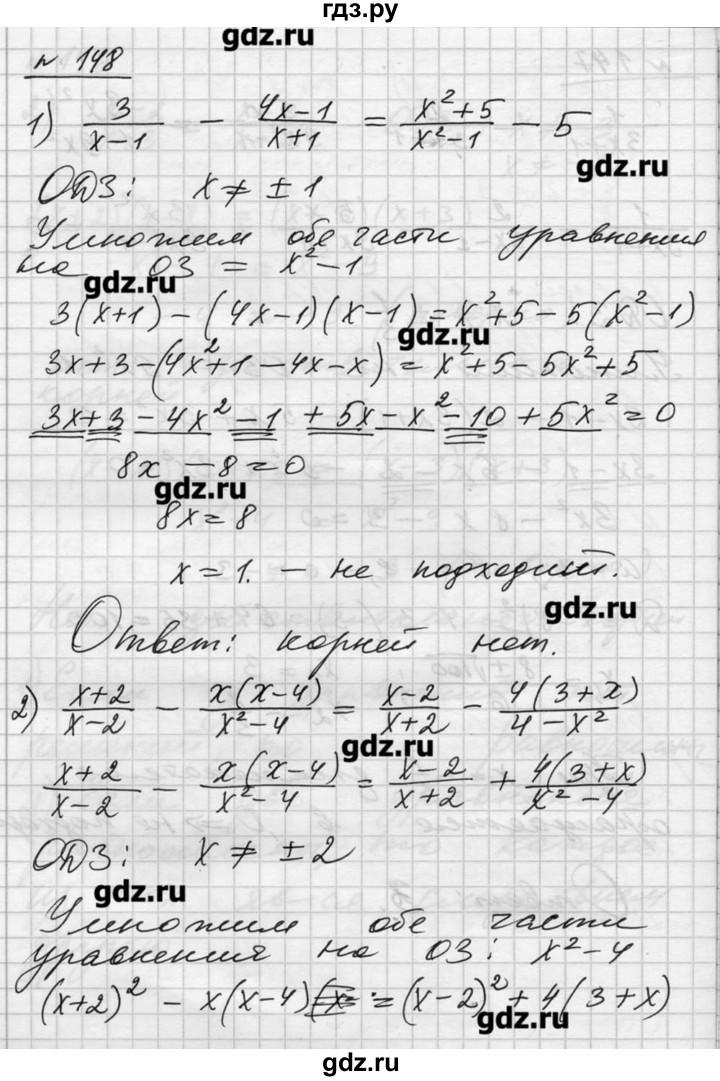 гдз.ру
gdz.ru
№ 148
1) 3/(x-1) - (4x-1)/(x+1) = (x²+5)/(x²-1) - 5
gdz.ru
ОДЗ: x ≠ ±1
Умножим обе части уравнения
на ОЗ = x²-1
gdz.ru
3(x+1) - (4x-1)(x-1) = x²+5-5(x²-1)
gdz.ru
3x+3-(4x²+1-4x-x) = x²+5-5x²+5
3x+3-4x²-1+5x-x²-10+5x²=0
8x-8=0
gdz.ru
8x=8
x=1. - не подходит.
gdz.ru
Ответ: корней нет.
2) (x+2)/(x-2) - x(x-4)/(x²-4) = (x-2)/(x+2) - 4(3+x)/(4-x²)
gdz.ru
(x+2)/(x-2) - x(x-4)/(x²-4) = (x-2)/(x+2) + 4(3+x)/(x²-4)
ОДЗ: x ≠ ±2
gdz.ru
Умножим обе части
уравнения на ОЗ: x²-4
(x+2)² - x(x-4) = (x-2)² + 4(3+x)
gdz.ru
gdz.ru